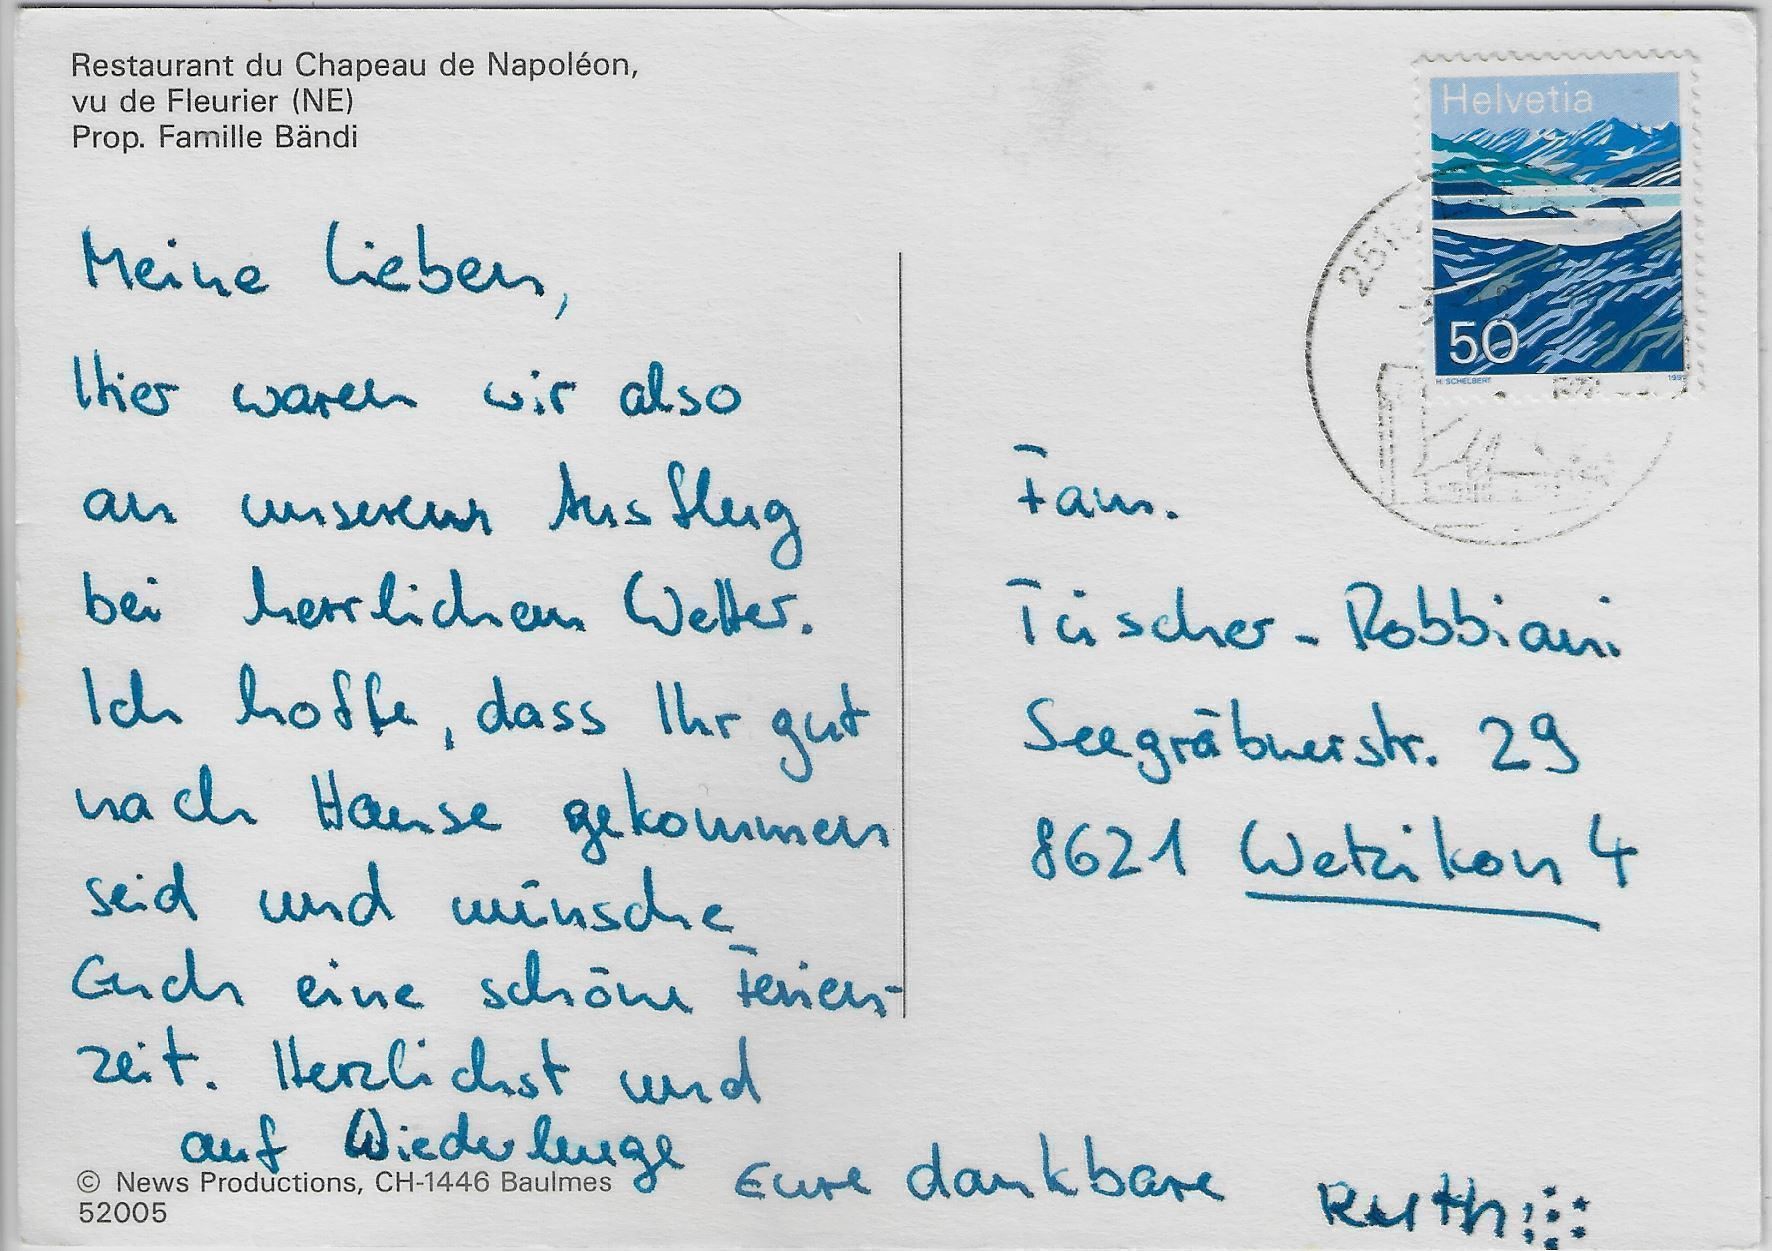 Restaurant du Chapeau de Napoléon,
vu de Fleurier (NE)
Prop. Famille Bändi
Helvetia
50
H. SCHELBERT
Meine Lieben,
Hier waren wir also
an unserem Ausflug
bei herrlichem Wetter.
Ich hoffe, dass Ihr gut
nach Hause gekommen
seid und wünsche
Euch eine schöne Ferien-
zeit. Herzlichst und
auf
Eure dankbare
Ruth
Fam.
Tüscher-Robbiani
Seegräbnerstr. 29
8621 Wetzikon 4
© News Productions, CH-1446 Baulmes
52005